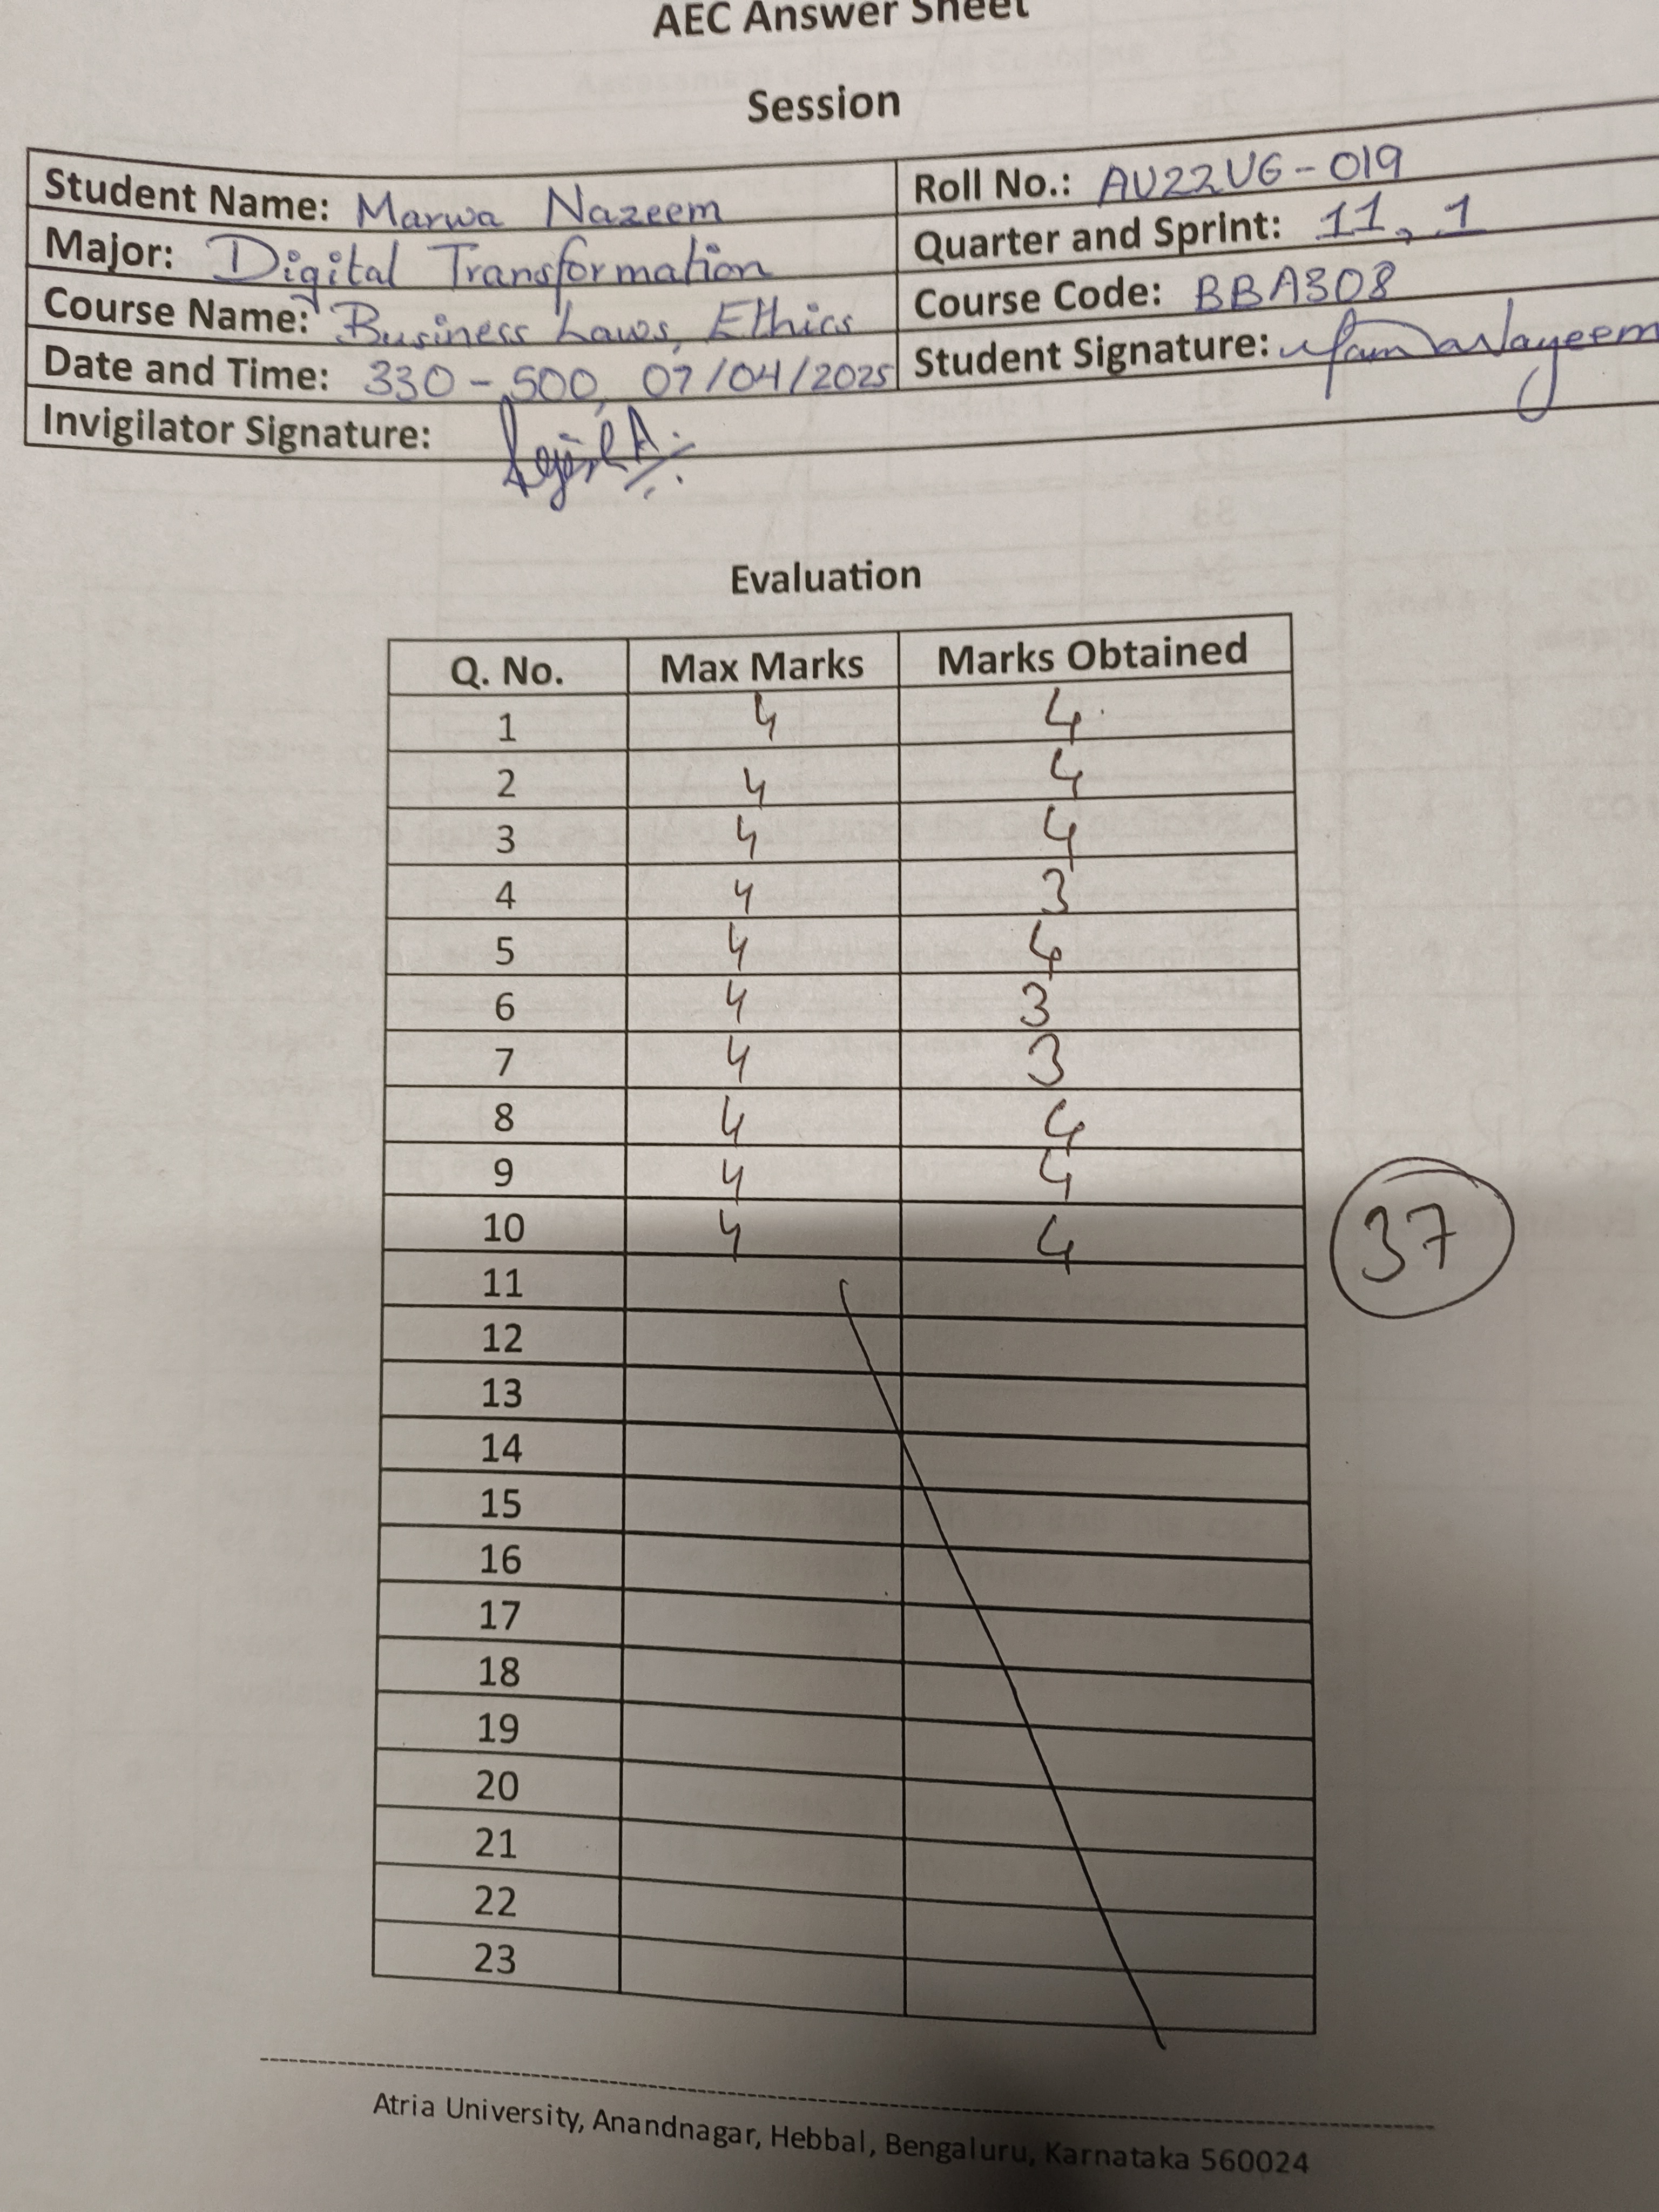 AEC Answer Sheet
Session
Student Name: Marwa Nazeem
Roll No.: AU22UG-019
Major: Digital Transformation
Quarter and Sprint: 11, 1
Course Name: Business Laws, Ethics
Course Code: BBA308
Date and Time: 330-500, 07/04/2025
Student Signature:
Invigilator Signature:
Evaluation
Q. No. Max Marks Marks Obtained
1 4 4
2 4 4
3 4 4
4 4 3
5 4 4
6 4 3
7 4 3
8 4 4
9 4 4
10 4 4
37
11
12
13
14
15
16
17
18
19
20
21
22
23
Atria University, Anandnagar, Hebbal, Bengaluru, Karnataka 560024